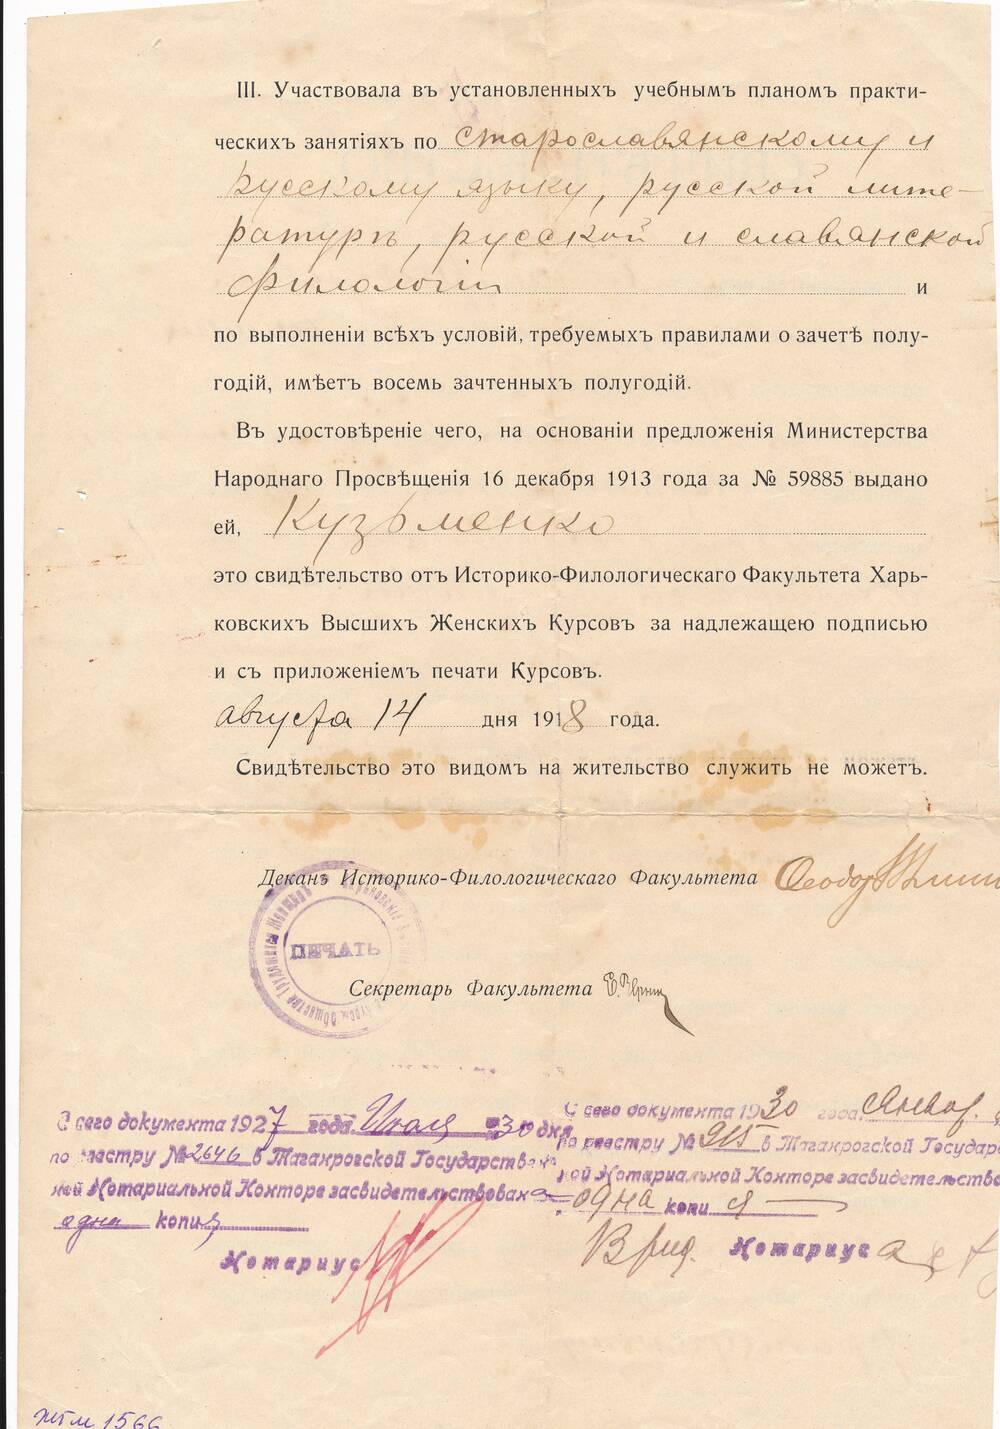 III. Участвовала въ установленныхъ учебнымъ планомъ практи-
ческихъ занятіяхъ по старославянскому и
русскому языку, русской лите-
ратурѣ, русской и славянской
филологіи и
по выполненіи всѣхъ условій, требуемыхъ правилами о зачетѣ полу-
годій, имѣетъ восемь зачтенныхъ полугодій.
Въ удостовѣреніе чего, на основаніи предложенія Министерства
Народнаго Просвѣщенія 16 декабря 1913 года за № 59885 выдано
ей, Кузьменко
это свидѣтельство отъ Историко-Филологическаго Факультета Харь-
ковскихъ Высшихъ Женскихъ Курсовъ за надлежащею подписью
и съ приложеніемъ печати Курсовъ.
августа 14 дня 1918 года.
Свидѣтельство это видомъ на жительство служить не можетъ.
Деканъ Историко-Филологическаго Факультета
ПЕЧАТЬ
Секретарь Факультета
С сего документа 1927 года Июля 30 дня
по реестру № 2646 в Таганрогской Государствен-
ной Нотариальной Конторе засвидетельствована
одна копия
Нотариус
С сего документа 1930 года Январ.
по реестру № 915 в Таганрогской Государс
ной Нотариальной Конторе засвидетельство
одна копия
Врид. Нотариуса
ЖТМ 1566